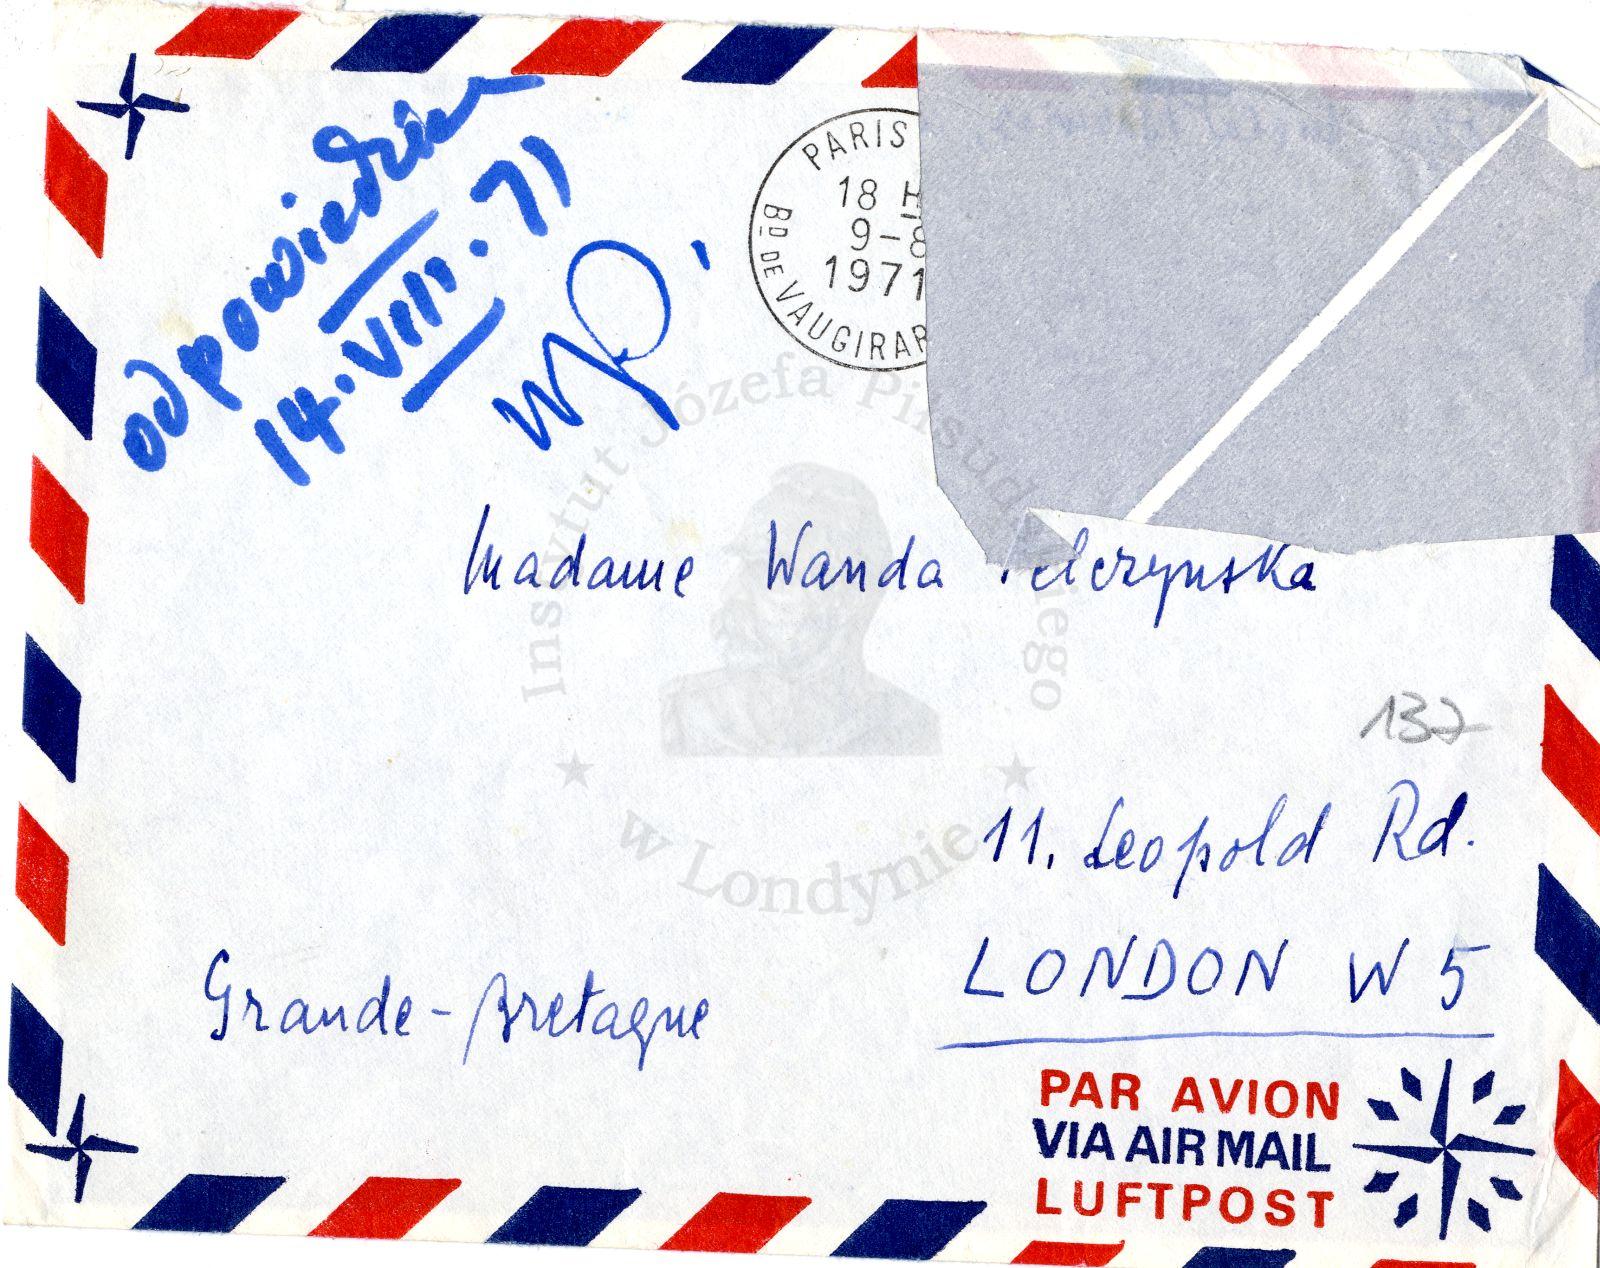 odpowiedziałam
14.VIII.71
WP.
PARIS
18 H
9-8
1971
Bd DE VAUGIRAR
Madame Wanda Pelczynska
137
11. Leopold Rd.
LONDON W 5
Grande-Bretagne
PAR AVION
VIA AIR MAIL
LUFTPOST
Instytut Józefa Piłsudskiego
w Londynie